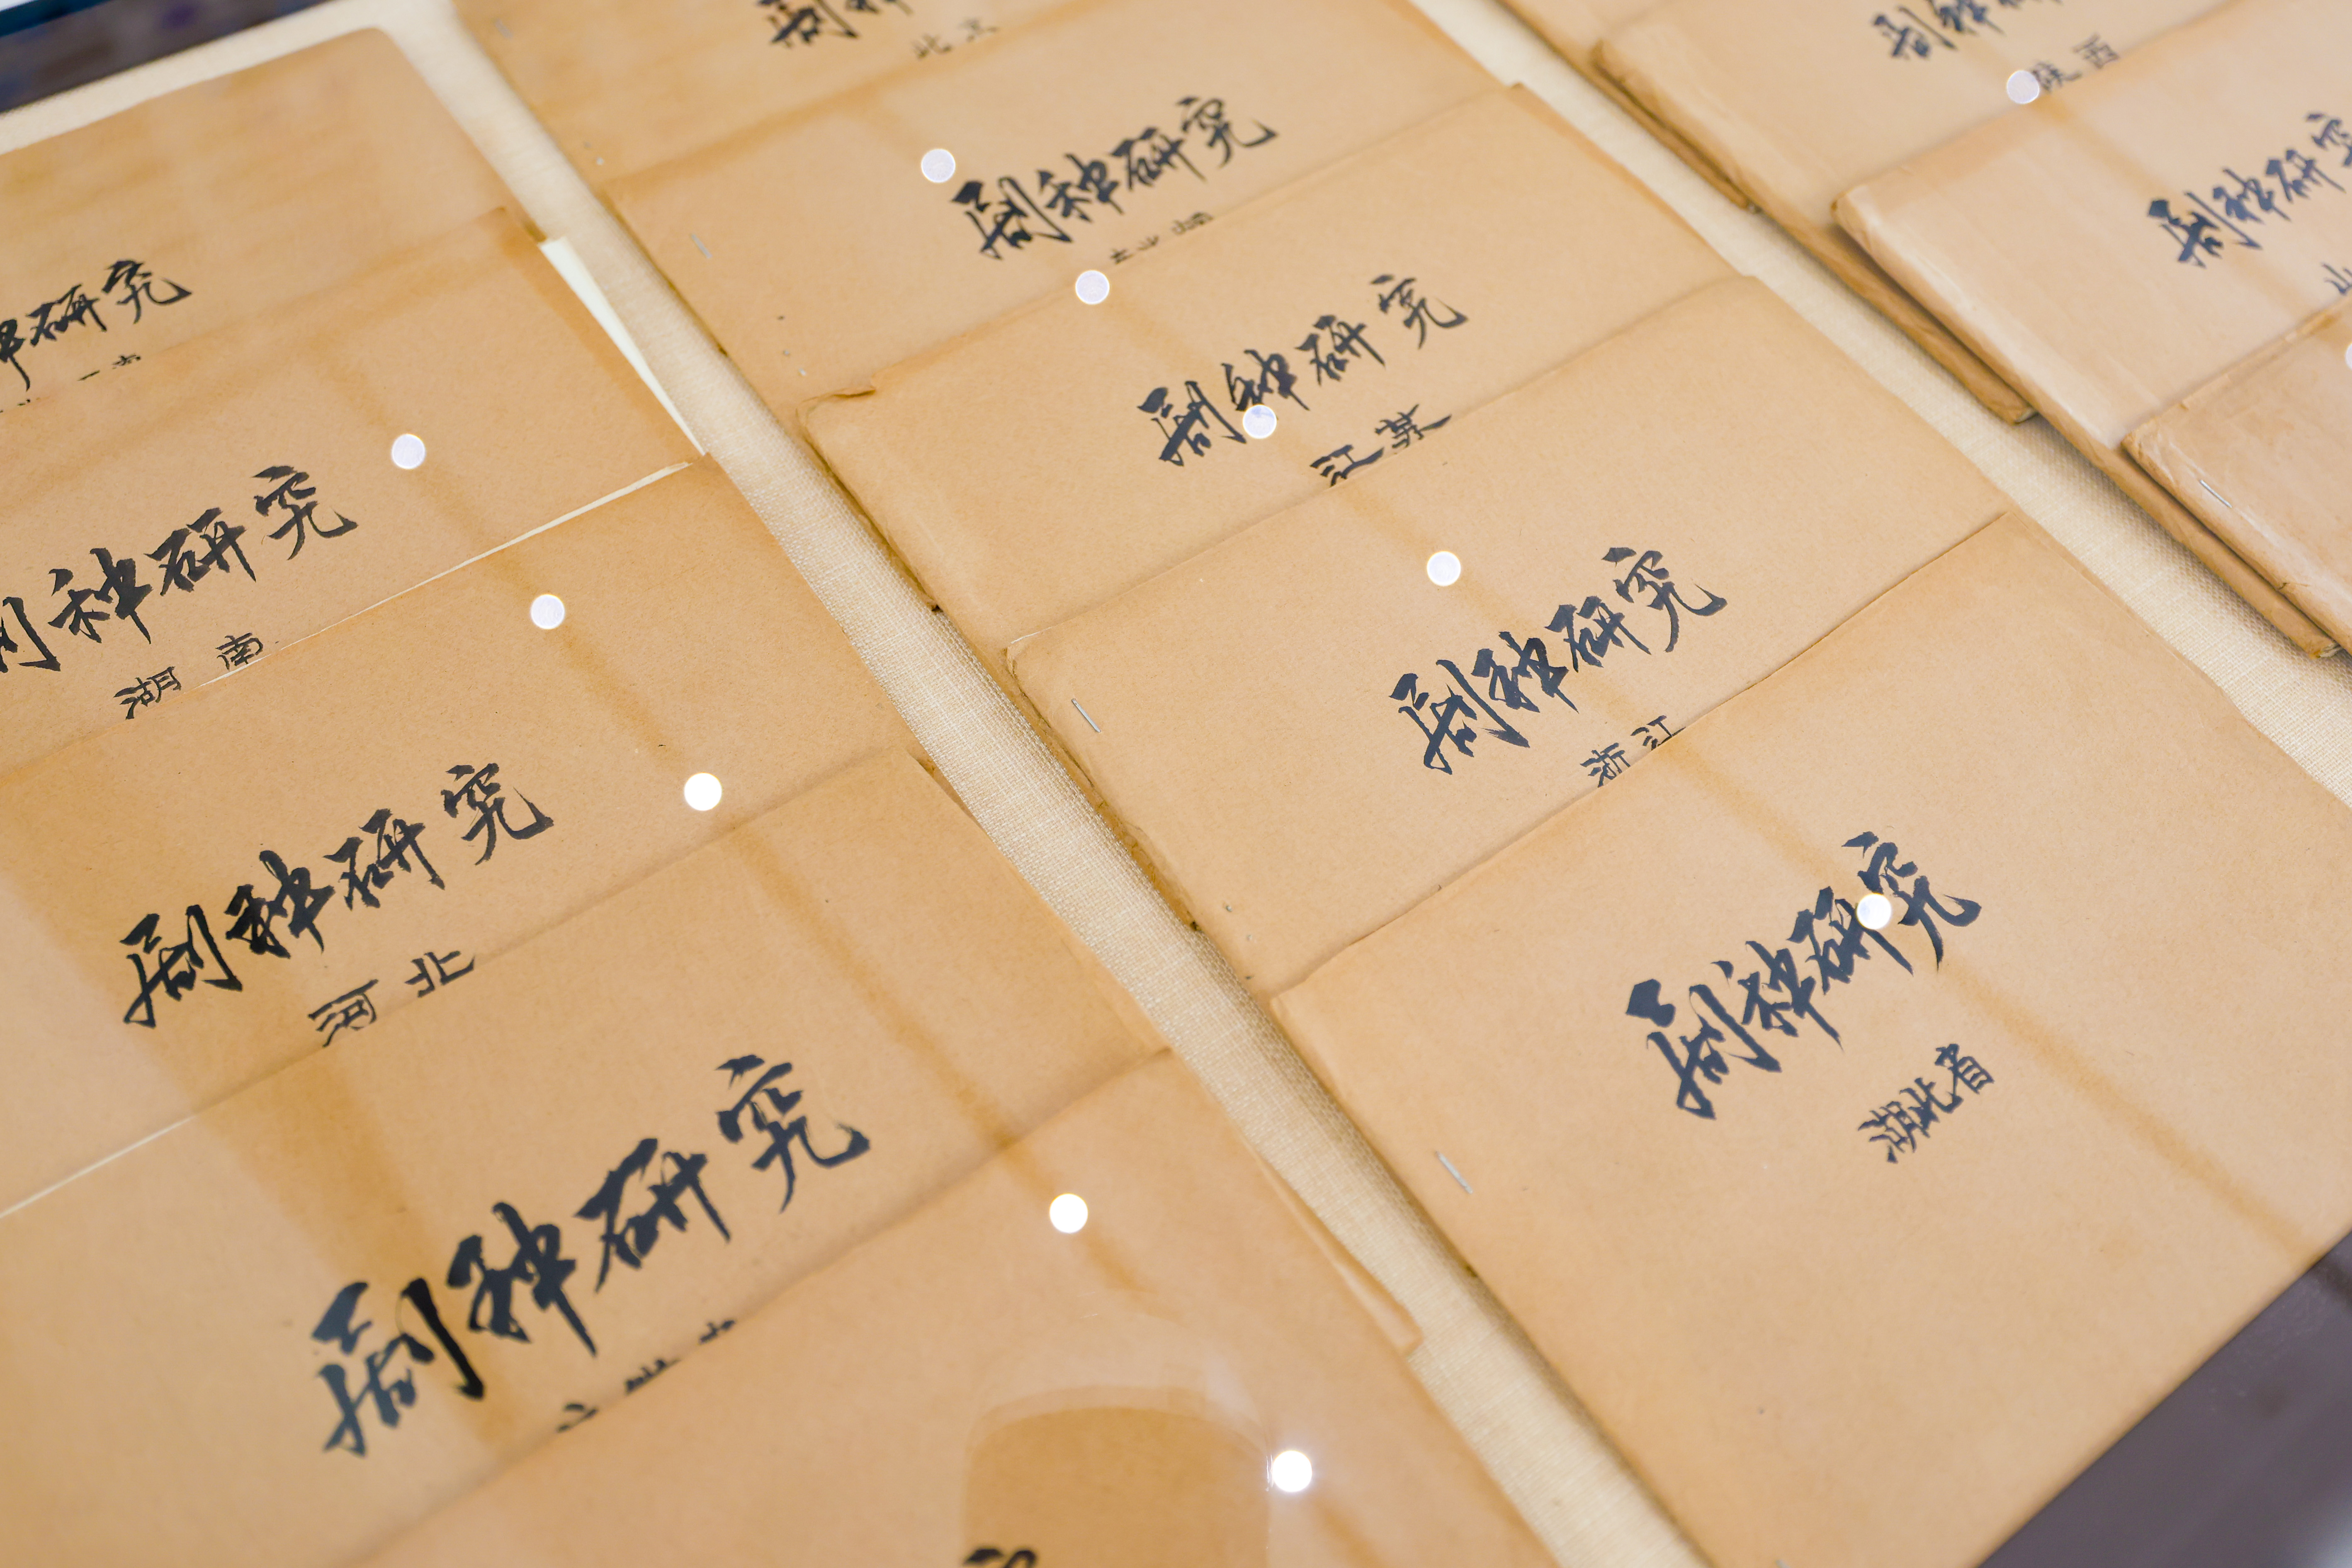 种研究
剧种研究
湖南
剧种研究
河北
剧种研究
剧种
北京
剧种研究
剧种研究
江苏
剧种研究
浙江
剧种研究
湖北省
剧种研
陕西
剧种研究
山